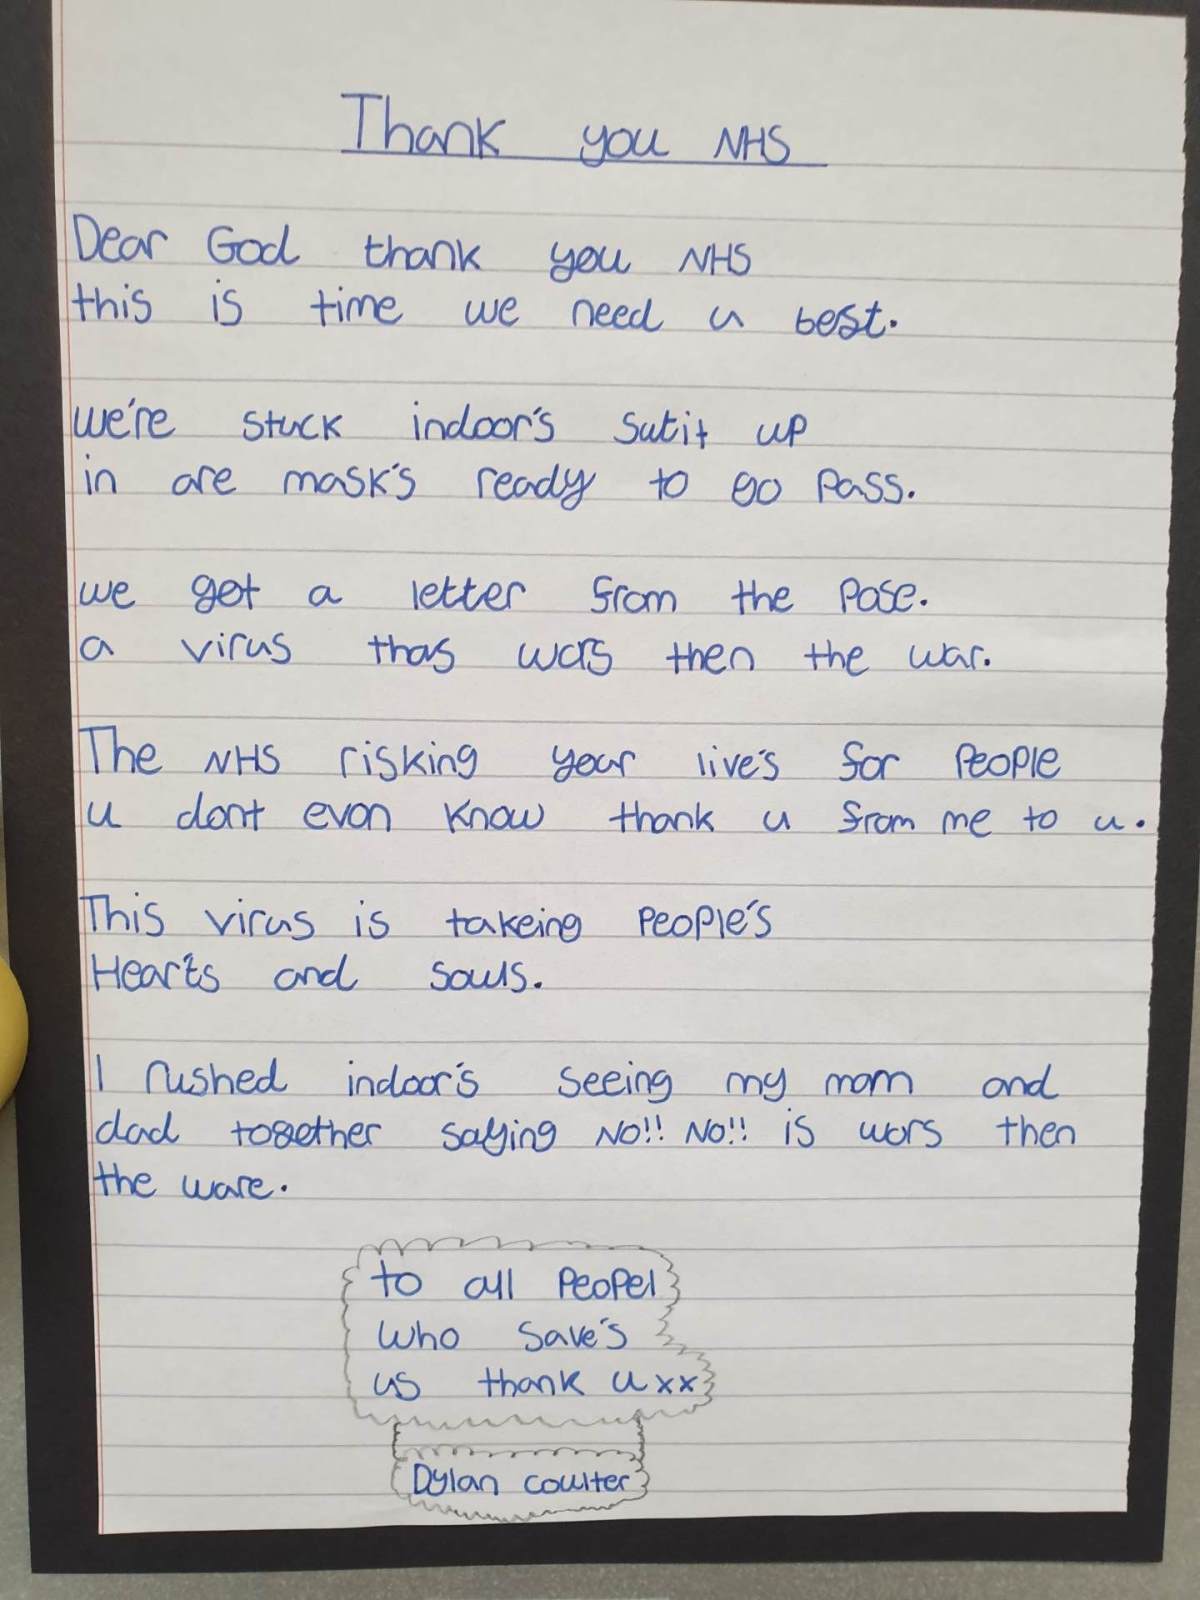 Thank you NHS
Dear God thank you NHS
this is time we need u best.
we're stuck indoor's sutit up
in are mask's ready to go pass.
we get a letter from the pose.
a virus thas wors then the war.
The NHS risking year live's for people
u dont evon know thank u from me to u.
This virus is takeing people's
Heart's and souls.
I rushed indoor's seeing my mom and
dad together saying NO!! NO!! is wors then
the ware.
to all peopel
who save's
us thank u xx
Dylan coulter